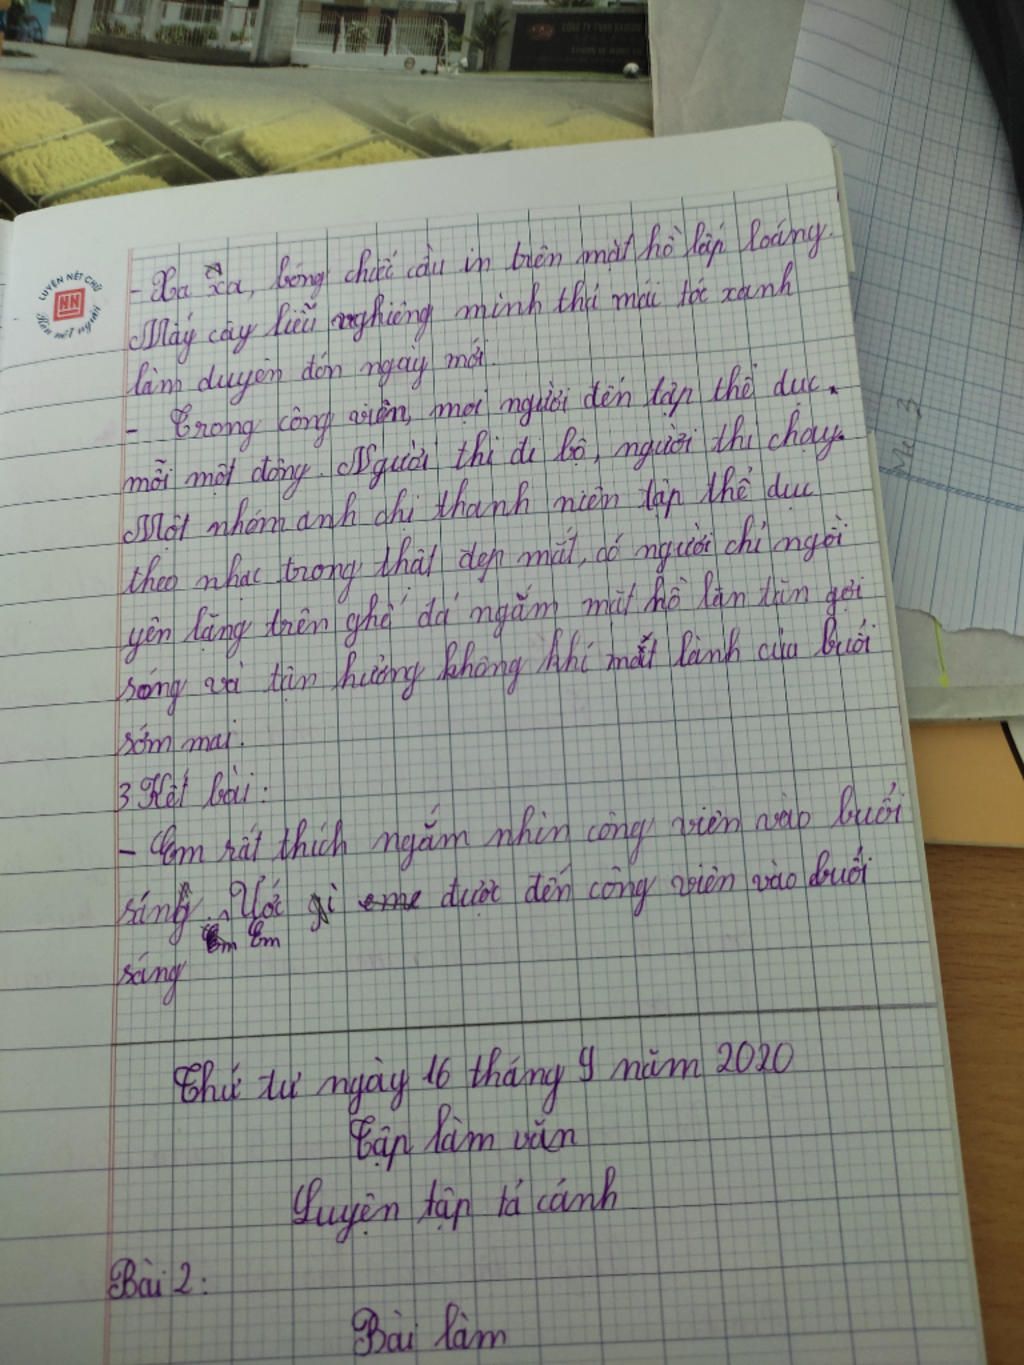 CÔNG TY TNHH
LUYỆN NÉT CHỮ
NN
Rèn nết người
- Xa xa, bóng chiếc cầu in trên mặt hồ lấp loáng.
Mấy cây liễu nghiêng mình thả mái tóc xanh
làm duyên đón ngày mới.
- Trong công viên, mọi người đến tập thể dục
mỗi một đông. Người thì đi bộ, người thì chạy.
Một nhóm anh chị thanh niên tập thể dục
theo nhạc trong thật đẹp mắt, có người chỉ ngồi
yên lặng trên ghế đá ngắm mặt hồ lăn tăn gợi
sóng và tận hưởng không khí mát lành của buổi
sớm mai.
3 Kết bài:
- Em rất thích ngắm nhìn công viên vào buổi
sáng. Ước gì em được đến công viên vào buổi
Em
sáng
Thứ tư ngày 16 tháng 9 năm 2020
Tập làm văn
Luyện tập tả cảnh
Bài 2:
Bài làm